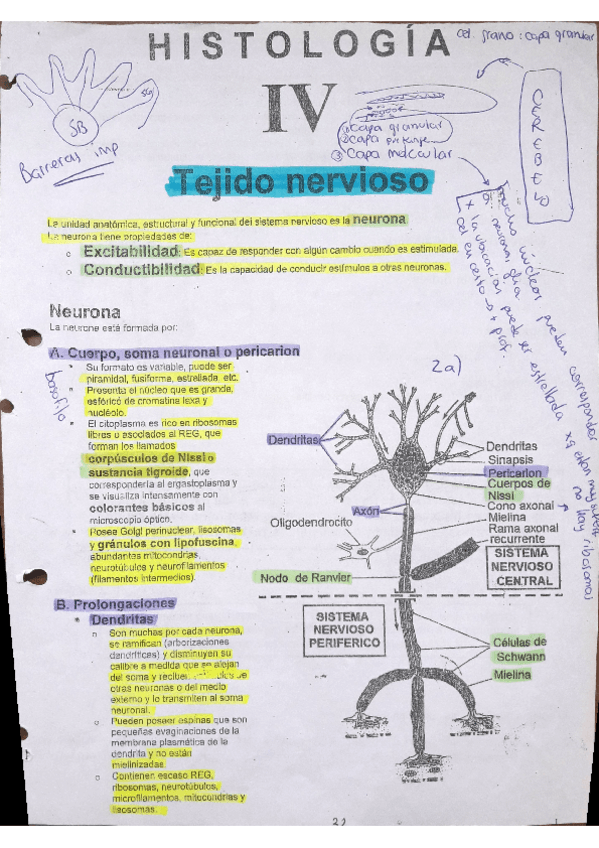 HISTOLOGÍA
cel. grano: capa granular
IV
SB
SG
Barreras imp
① Capa granular
② Capa
③ Capa molecular
CEREBELO
Tejido nervioso
La unidad anatómica, estructural y funcional del sistema nervioso es la neurona
La neurona tiene propiedades de:
o Excitabilidad: Es capaz de responder con algún cambio cuando es estimulada.
o Conductibilidad: Es la capacidad de conducir estímulos a otras neuronas.
mucho núcleos pueden corresponder
neurona, glia
x la ubicación puede ser estrellada xq estan muy
cel en cesto → + prof.
no hay ribosomas
Neurona
La neurone está formada por:
A. Cuerpo, soma neuronal o pericarion
basofilo
• Su formato es variable, puede ser
piramidal, fusiforme, estrellada, etc.
• Presenta el núcleo que es grande,
esférico de cromatina laxa y
nucléolo.
• El citoplasma es rico en ribosomas
libres o asociados al REG, que
forman los llamados
corpúsculos de Nissl o
sustancia tigroide, que
correspondería al ergastoplasma y
se visualiza intensamente con
colorantes básicos al
microscopio óptico.
• Posee Golgi perinuclear, lisosomas
y gránulos con lipofuscina,
abundantes mitocondrias,
neurotúbulos y neurofilamentos
(filamentos intermedios).
B. Prolongaciones
• Dendritas
o Son muchas por cada neurona,
se ramifican (arborizaciones
dendríticas) y disminuyen su
calibre a medida que se alejan
del soma y reciben de
otras neuronas o del medio
externo y lo transmiten al soma
neuronal.
o Pueden poseer espinas que son
pequeñas evaginaciones de la
membrana plasmática de la
dendrita y no están
mielinizadas.
o Contienen escaso REG,
ribosomas, neurotúbulos,
microfilamentos, mitocondrias y
lisosomas.
2a)
Dendritas
Axón
Oligodendrocito
Nodo de Ranvier
Dendritas
Sinapsis
Pericarion
Cuerpos de
Nissl
Cono axonal
Mielina
Rama axonal
recurrente
SISTEMA
NERVIOSO
CENTRAL
SISTEMA
NERVIOSO
PERIFERICO
Células de
Schwann
Mielina